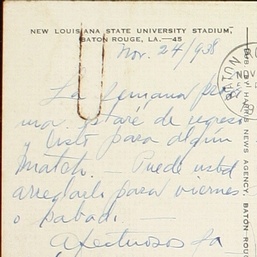 NEW LOUISIANA STATE UNIVERSITY STADIUM,
BATON ROUGE, LA.—45
Nov. 24/938
La semana pró
xima estaré de regreso
listo para algún
match. — Puede usted
arreglarlo para viernes
o sabado. —
Afectuosos sa
PUB. BY HARRIS NEWS AGENCY, BATON ROU
BATON
NOV